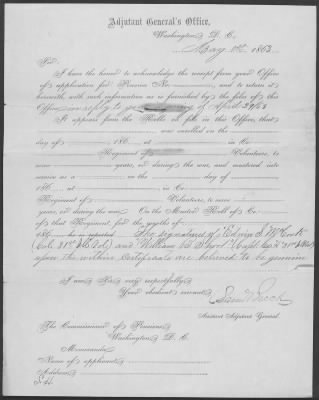 Adjutant General's Office,
Washington D. C.
May 1863
Sir:
I have the honor to acknowledge the receipt from your Office
of application for Pension No. and to return it
herewith, with such information as is furnished by the files of this
Office in reply to your of April 29/63
It appears from the Rolls on file in this Office, that
was enrolled on the
day of 186 , at in Co.
Regiment of Volunteers, to
serve years, or during the war, and mustered into
service as a on the day of
186 , at in Co.
Regiment of Volunteers, to serve
years, or during the war. On the Muster Roll of Co.
of that Regiment, for the months of
186 , he is reported The signatures of
Col. 31st Ills Vols) and William
upon the within certificate are believed to be genuine
I am Sir Very respectfully
Your obedient servant
Assistant Adjutant General.
To The Commissioner of Pensions
Washington D. C.
Memoranda:
Name of applicant
Address